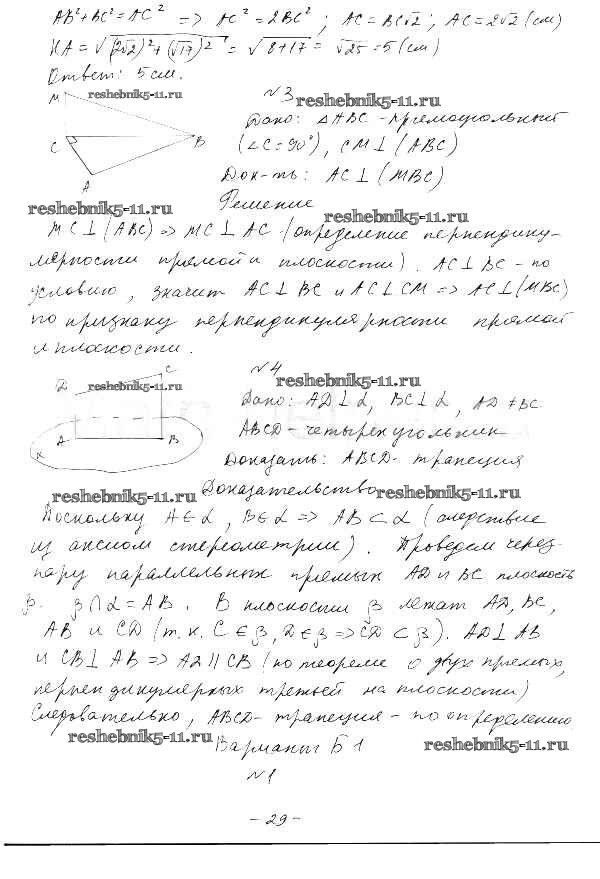 AB²+BC²=AC² => AC²=2BC²; AC=BC√2; AC=2√2 (см)
KA=√((2√2)²+(√17)²)=√(8+17)=√25=5 (см)
Ответ: 5 см.
reshebnik5-11.ru
№3
reshebnik5-11.ru
M
C
B
A
Дано: △ABC - прямоугольный
(∠C=90°), CM⊥(ABC)
Док-ть: AC⊥(MBC)
Решение
reshebnik5-11.ru
reshebnik5-11.ru
MC⊥(ABC) => MC⊥AC (определение перпендику-
лярности прямой и плоскости). AC⊥BC - по
условию, значит AC⊥BC и AC⊥CM => AC⊥(MBC)
по признаку перпендикулярности прямой
и плоскости.
№4
reshebnik5-11.ru
reshebnik5-11.ru
D
C
A
B
α
Дано: AD⊥α, BC⊥α, AD≠BC
ABCD - четырехугольник
Доказать: ABCD - трапеция
Доказательство
reshebnik5-11.ru
reshebnik5-11.ru
Поскольку A∈α, B∈α => AB⊂α (следствие
из аксиом стереометрии). Проведем через
пару параллельных прямых AD и BC плоскость
β. β∩α=AB. В плоскости β лежат AD, BC,
AB и CD (т.к. C∈β, D∈β => CD⊂β). AD⊥AB
и CB⊥AB => AD∥CB (по теореме о двух прямых,
перпендикулярных третьей на плоскости)
Следовательно, ABCD - трапеция - по определению.
reshebnik5-11.ru
Вариант Б1
reshebnik5-11.ru
№1
- 29 -